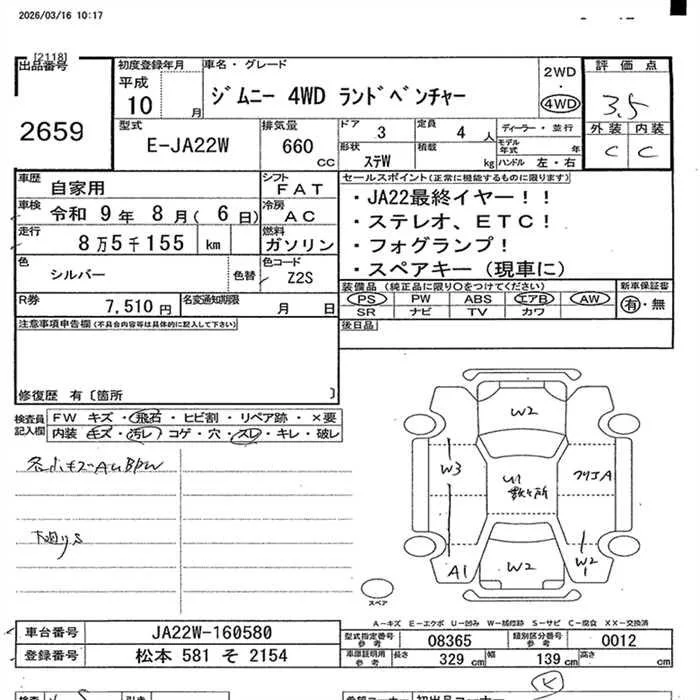 2026/03/16 10:17
[2118]
出品番号
2659
初度登録年月
平成
10 月
車名・グレード
ジムニー 4WD ランドベンチャー
2WD
・
4WD
評価点
3.5
外装 内装
C C
型式
E-JA22W
排気量
660 CC
ドア 3
形状 ステW
定員 4 人
積載 kg
ディーラー・並行
モデル年式 年
ハンドル 左・右
車歴
自家用
シフト
FAT
車検
令和 9年 8月( 6日)
冷房
AC
走行
8万5千155 km
燃料
ガソリン
色
シルバー
色替
色コード
Z2S
R券
7,510 円
名変通知期限
月 日
セールスポイント(正常に機能するものに限ります)
・JA22最終イヤー!!
・ステレオ、ETC!
・フォグランプ!
・スペアキー(現車に)
装備品(純正品に限り○をつけてください)
PS PW ABS エアB AW
SR ナビ TV カワ
新車保証書
有・無
後日品
注意事項申告欄(不具合内容等は具体的に記入して下さい)
修復歴 有〔箇所 〕
検査員記入欄
FW キズ・飛石・ヒビ割・リペア跡・×要
内装 キズ・汚レ・コゲ・穴・スレ・キレ・破レ
W2
W3
U1
数ヶ所
クリアA
A1
W2
W2
1
スペア
A−キズ E−エクボ U−凹み W−補修跡 S−サビ C−腐食 XX−交換済
車台番号
JA22W-160580
登録番号
松本 581 そ 2154
型式指定番号
参考
08365
類別区分番号
参考
0012
車庫証明用
参考
長さ 329 cm
幅 139 cm
高さ cm